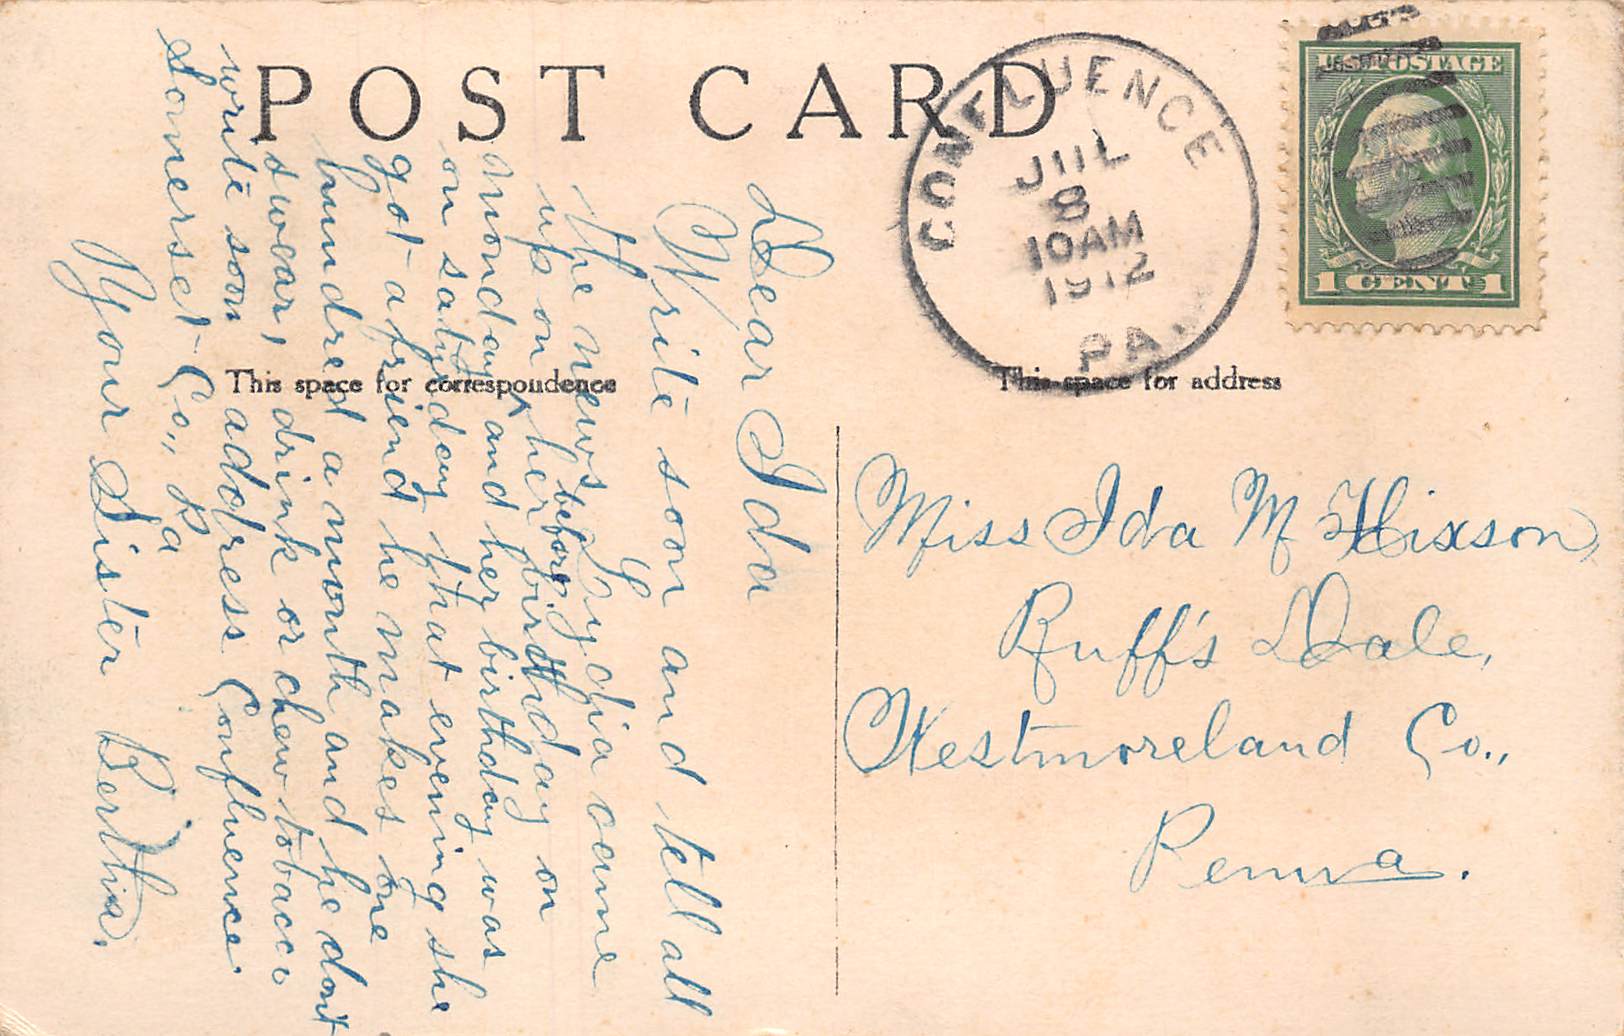 POST CARD
CONFLUENCE
JUL
8
10AM
1912
PA.
U.S. POSTAGE
1 CENT 1
This space for correspondence
This space for address
Dear Ida
Write soon and tell all
the news Lydia came
up on her birthday on
before
monday and her birthday was
on saturday that evening she
got a friend he makes one
hundred a month and he dont
swear, drink or chew tobacco
write soon address Confluence
Somerset Co., Pa
Your Sister Bertha.
Miss Ida M Hixson,
Ruff's Dale,
Westmoreland Co.,
Penna.